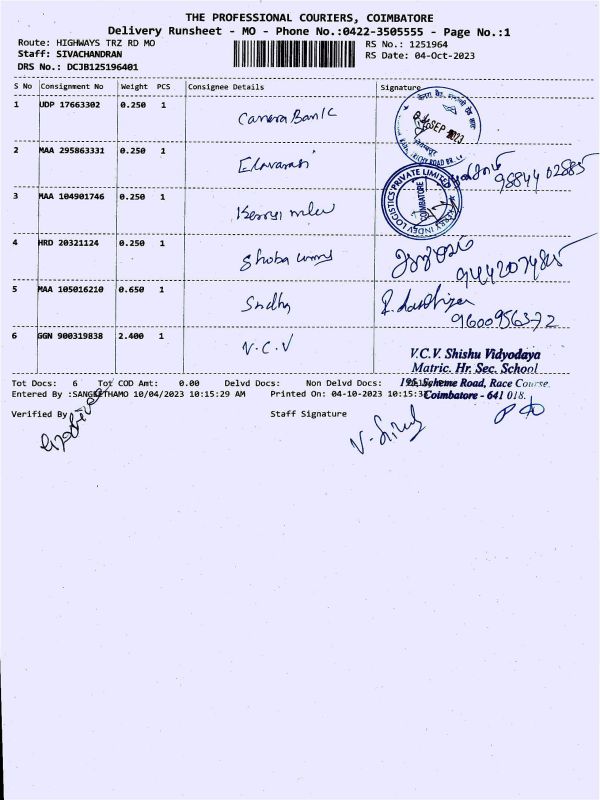 THE PROFESSIONAL COURIERS, COIMBATORE
Delivery Runsheet - MO - Phone No.:0422-3505555 - Page No.:1
Route: HIGHWAYS TRZ RD MO
RS No.: 1251964
Staff: SIVACHANDRAN
RS Date: 04-Oct-2023
DRS No.: DCJB125196401
S No Consignment No Weight PCS Consignee Details Signature
1 UDP 17663302 0.250 1 Canara Bank
SEP 2023
2 MAA 295863331 0.250 1 98844 02885
PRIVATE LIMITED
INDEV LOGISTICS
COIMBATORE
3 MAA 104901746 0.250 1
4 HRD 20321124 0.250 1 Shoba
5 MAA 105016210 0.650 1 Sndhy
9600956372
6 GGN 900319838 2.400 1 V.C.V
V.C.V. Shishu Vidyodaya
Matric. Hr. Sec. School
Tot Docs: 6 Tot COD Amt: 0.00 Delvd Docs: Non Delvd Docs:
195, Scheme Road, Race Course,
Entered By :SANGEETHAMO 10/04/2023 10:15:29 AM Printed On: 04-10-2023 10:15:3
Coimbatore - 641 018.
Verified By Staff Signature